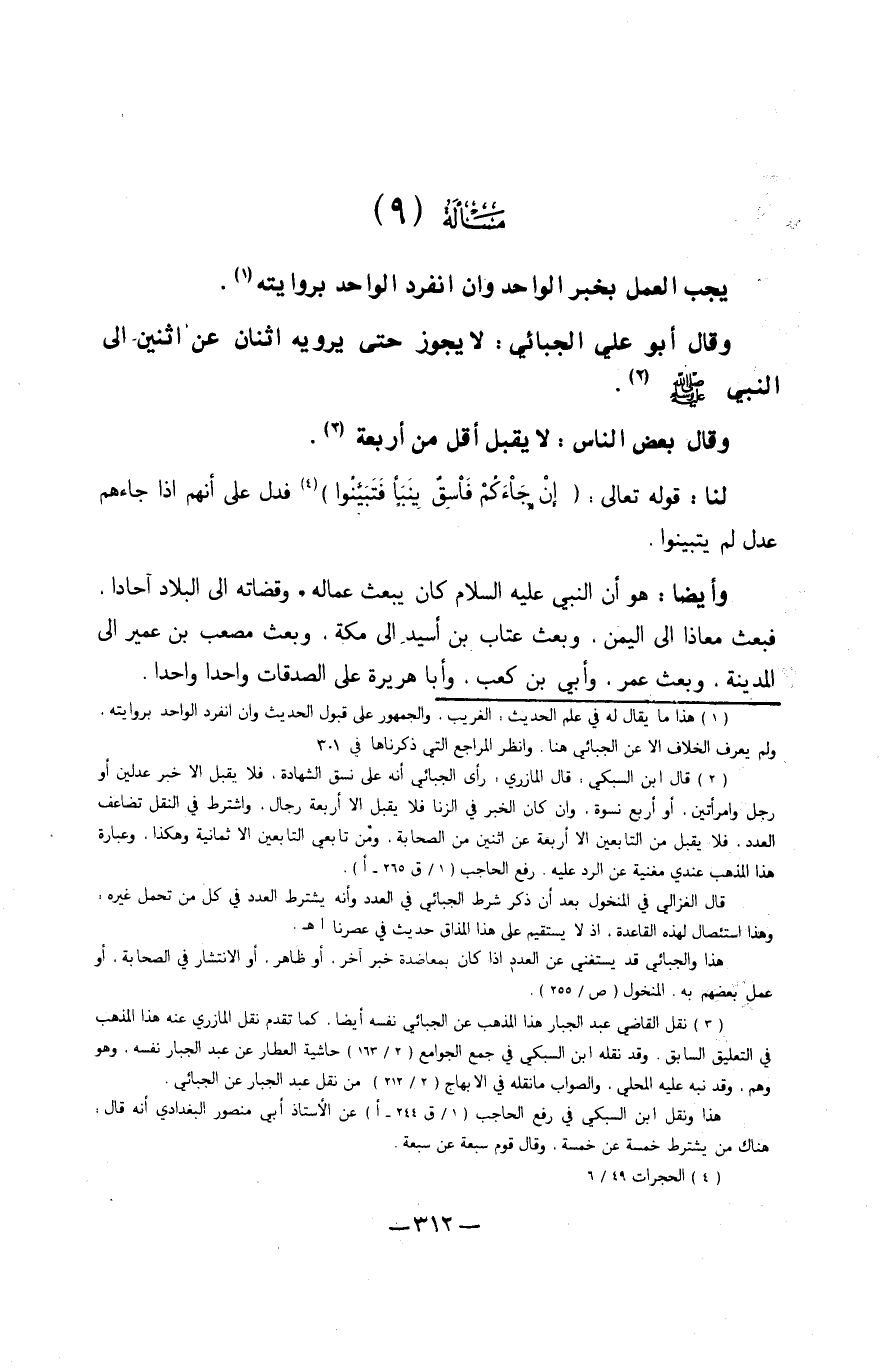 مسألة (٩)
يجب العمل بخبر الواحد وان انفرد الواحد بروايته(١) .
وقال أبو علي الجبائي : لا يجوز حتى يرويه اثنان عن اثنين الى
النبي ﷺ (٢) .
وقال بعض الناس : لا يقبل أقل من أربعة (٣) .
لنا : قوله تعالى : ( إِنْ جَاْءَكُمْ فَاْسِقٌ بِنَبَأٍ فَتَبَيَّنُوا )(٤) فدل على أنهم اذا جاءهم
عدل لم يتبينوا .
وأيضا : هو أن النبي عليه السلام كان يبعث عماله وقضاته الى البلاد آحادا .
فبعث معاذا الى اليمن . وبعث عتاب بن أسيد الى مكة . وبعث مصعب بن عمير الى
المدينة . وبعث عمر . وأبي بن كعب . وأبا هريرة على الصدقات واحدا واحدا .
(١) هذا ما يقال له في علم الحديث : الغريب . والجمهور على قبول الحديث وان انفرد الواحد بروايته .
ولم يعرف الخلاف الا عن الجبائي هنا . وانظر المراجع التي ذكرناها في ٣٠١
(٢) قال ابن السبكي : قال المازري : رأى الجبائي أنه على نسق الشهادة . فلا يقبل الا خبر عدلين أو
رجل وامرأتين . أو أربع نسوة . وان كان الخبر في الزنا فلا يقبل الا أربعة رجال . واشترط في النقل تضاعف
العدد . فلا يقبل من التابعين الا أربعة عن اثنين من الصحابة . ومن تابعي التابعين الا ثمانية وهكذا . وعبارة
هذا المذهب عندي مغنية عن الرد عليه . رفع الحاجب (١ / ق ٢٦٥ ـ أ ) .
قال الغزالي في المنخول بعد أن ذكر شرط الجبائي في العدد وأنه يشترط العدد في كل من تحمل غيره :
وهذا استئصال لهذه القاعدة . اذ لا يستقيم على هذا المذاق حديث في عصرنا ا هـ .
هذا والجبائي قد يستغني عن العدد اذا كان بمعاضدة خبر آخر . أو ظاهر . أو الانتشار في الصحابة . أو
عمل بعضهم به . المنخول ( ص / ٢٥٥ ) .
(٣) نقل القاضي عبد الجبار هذا المذهب عن الجبائي نفسه أيضا . كما تقدم نقل المازري عنه هذا المذهب
في التعليق السابق . وقد نقله ابن السبكي في جمع الجوامع ( ٢ / ١٦٣ ) حاشية العطار عن عبد الجبار نفسه . وهو
وهم . وقد نبه عليه المحلي . والصواب مانقله في الابهاج ( ٢ / ٢١٢ ) من نقل عبد الجبار عن الجبائي .
هذا ونقل ابن السبكي في رفع الحاجب ( ١ / ق ٢٤٤ ـ أ ) عن الأستاذ أبي منصور البغدادي أنه قال :
هناك من يشترط خمسة عن خمسة . وقال قوم سبعة عن سبعة .
(٤) الحجرات ٤٩ / ٦
ـ ٣١٢ ـ